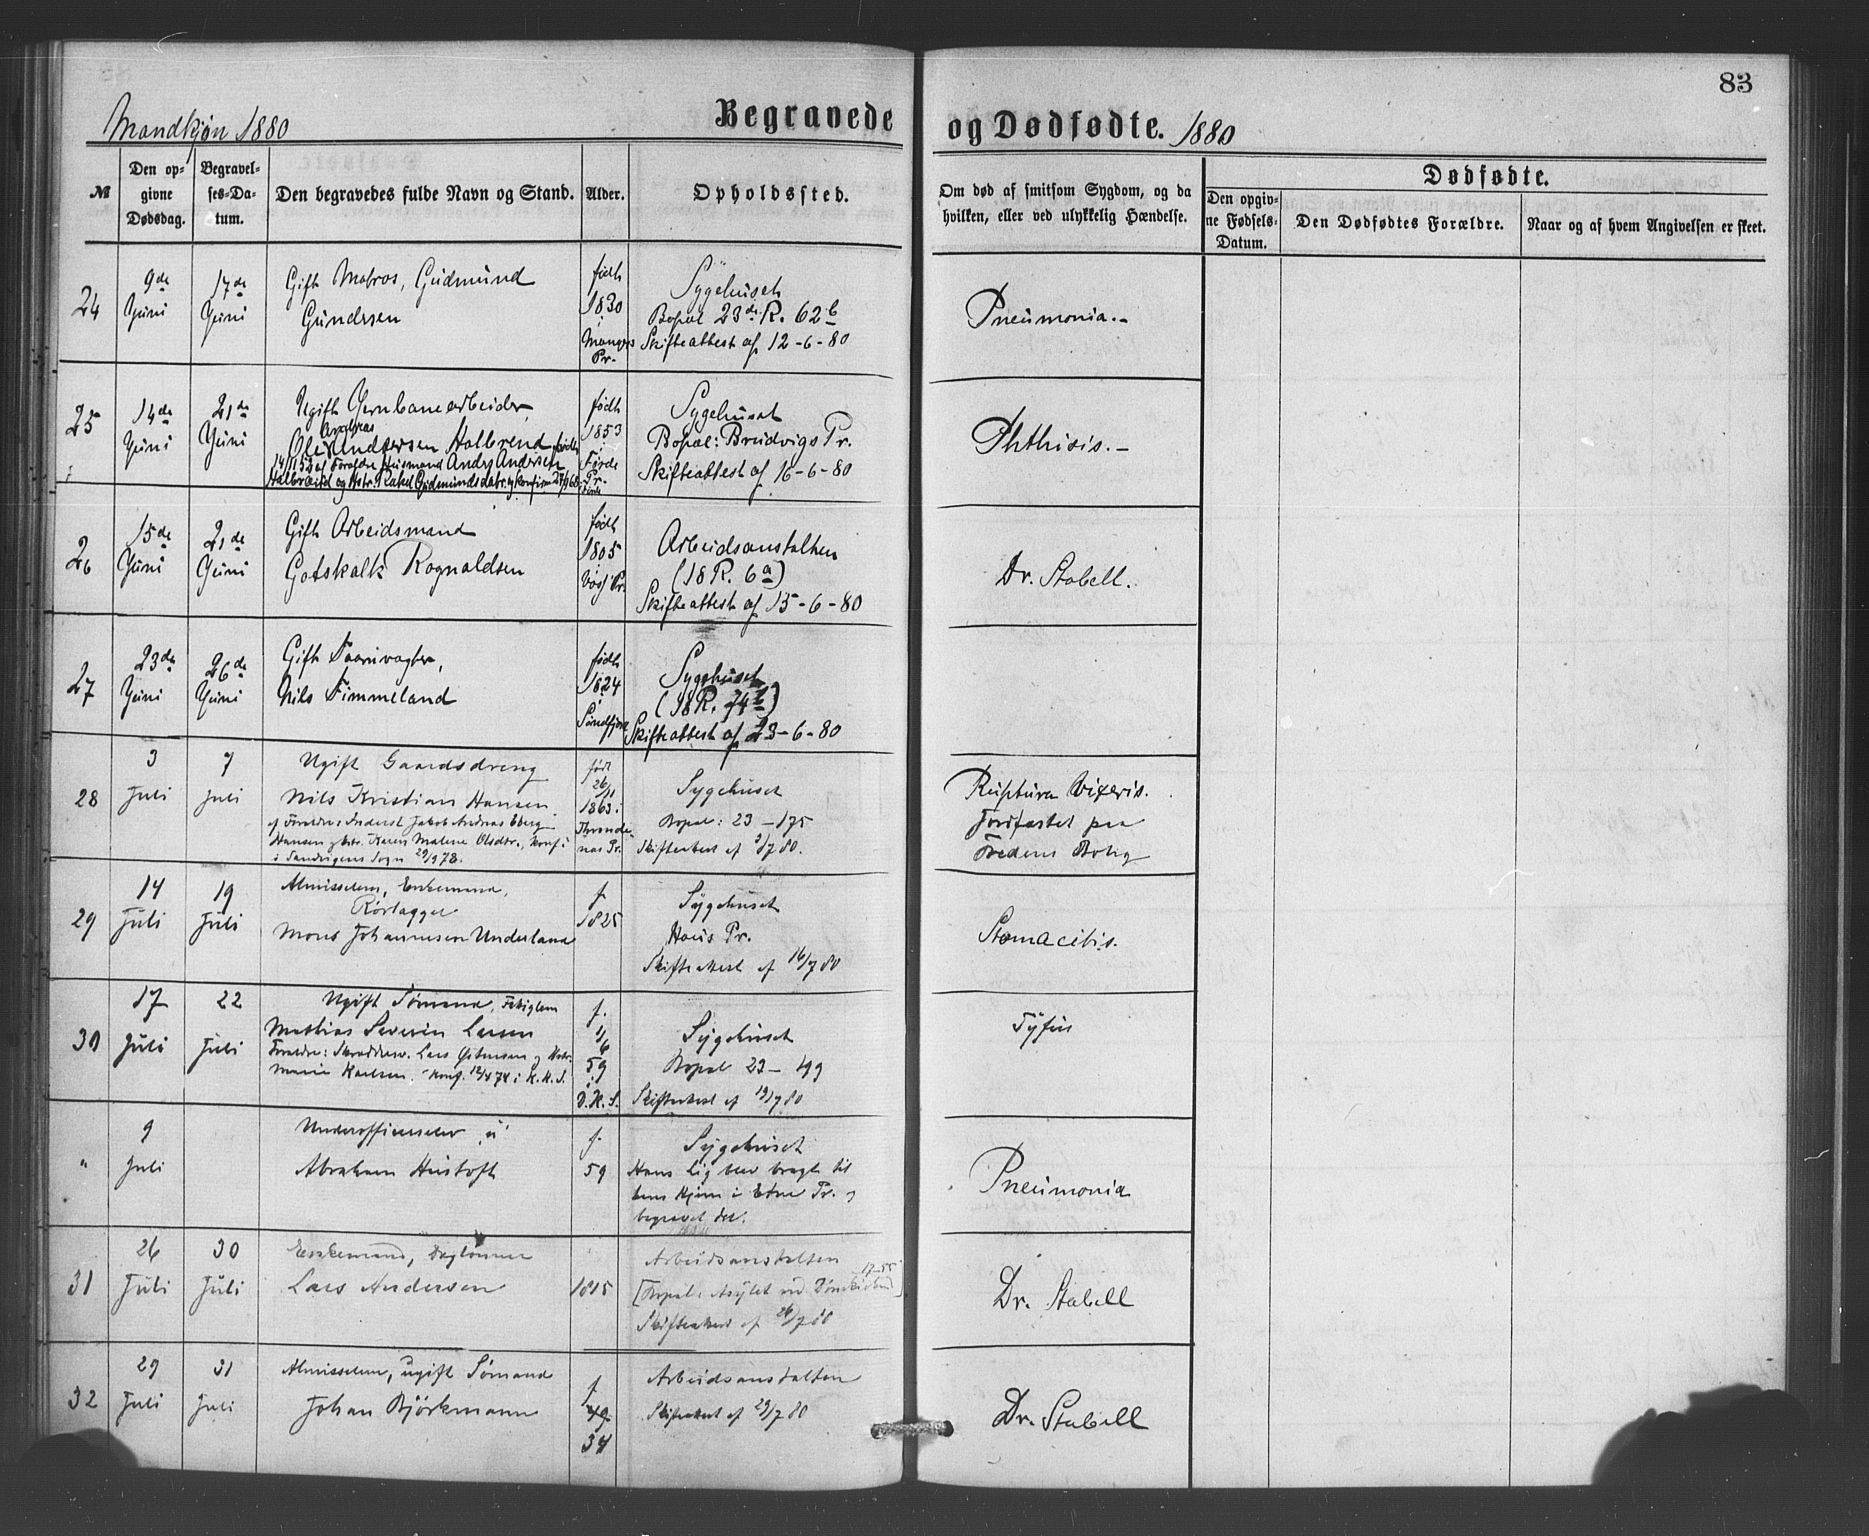 83
Mandkjøn 1880
Begravede
og Dødfødte. 1880
№
Den op-
givne
Dødsdag.
Begravel-
ses-Da-
tum.
Den begravedes fulde Navn og Stand.
Alder.
Opholdssted.
Om død af smitsom Sygdom, og da
hvilken, eller ved ulykkelig Hændelse.
Dødfødte.
Den opgiv-
ne Fødsels-
Datum.
Den Dødfødtes Forældre.
Naar og af hvem Angivelsen er skeet.
24
9de
Juni
17de
Juni
Gift Matros, Gudmund
Gundersen
født
1830
i
Manger
Pr.
Sygehuset
Bopæl 23de R. 62b
Skifteattest af 12-6-80
Pneumonia.-
25
14de
Juni
21de
Juni
Ugift Jernbanearbeider
Andreas
Ole Andersen Halbrend født
14/11 53 af Foræld. Husmand Anders Andersen
Halbrend og Hstr. Rakel Gudmundsdatr. og konfirm
født
1853
i
Førde
Pr.
Sygehuset
Bopæl: Brudvigs Pr.
Skifteattest af 16-6-80
Phthisis.-
26
15de
Juni
21de
Juni
Gift Arbeidsmand
Gotskalk Rognaldsen
født
1805
i
Voss Pr.
Arbeidsanstalten
(18 R. 6a)
Skifteattest af 15-6-80
Dr. Stabell.
27
23de
Juni
26de
Juni
Gift
Nils Timmeland
født
1824
i
Søndfjord
Sygehuset
(18 R. 74b)
Skifteattest af 23-6-80
28
3
Juli
7
Juli
Ugift Gaardsdreng
Nils Kristian Hansen
af Forældre: Jakob Andreas Eberg
Hansen og Hstr. Karen Malene Olsdtr., konf. i
i Sandvigens Sogn 29/9 78.
født
26/11
1863 i
Thronde-
nes Pr.
Sygehuset
Bopæl: 23-175
Skifteattest af 3/7 80.
Ruptura
paa
Fredens Bolig
29
14
Juli
19
Juli
Almisselem, Enkemand,
Rørlægger
Mons Johannesen Underland
f.
1825
Sygehuset
Haus Pr.
Skifteattest af 16/7 80
Stomacitis.
30
17
Juli
22
Juli
Ugift Sømand, Fattiglem
Mathias Severin Larsen
Forældre: Skrædersv. Lars Østensen og Hstr.
Marie Karlsen. Konf. 12/4 74 i K. K. S.
f.
1/6
59
i
D. K. S.
Sygehuset
Bopæl 23-499
Skifteattest af 19/7 80
Tyfus
"
9
Juli
Underofficerselev, u
Abraham Hustoft
f.
59
Sygehuset
Hans Lig blev bragt til
hans Hjem i Etne Pr. og
begravet der.
Pneumonia
31
26
Juli
30
Juli
Enkemand, Daglønner
Lars Andersen
1815
Arbeidsanstalten
17-55
[Bopæl: Asylet ved Domkirken]
Skifteattest af 26/7 80
Dr. Stabell
32
29
Juli
31
Juli
Almisselem, ugift Sømand
Johan Bjørkmann
f.
49
34
Arbeidsanstalten
Skifteattest af 29/7 80
Dr. Stabell